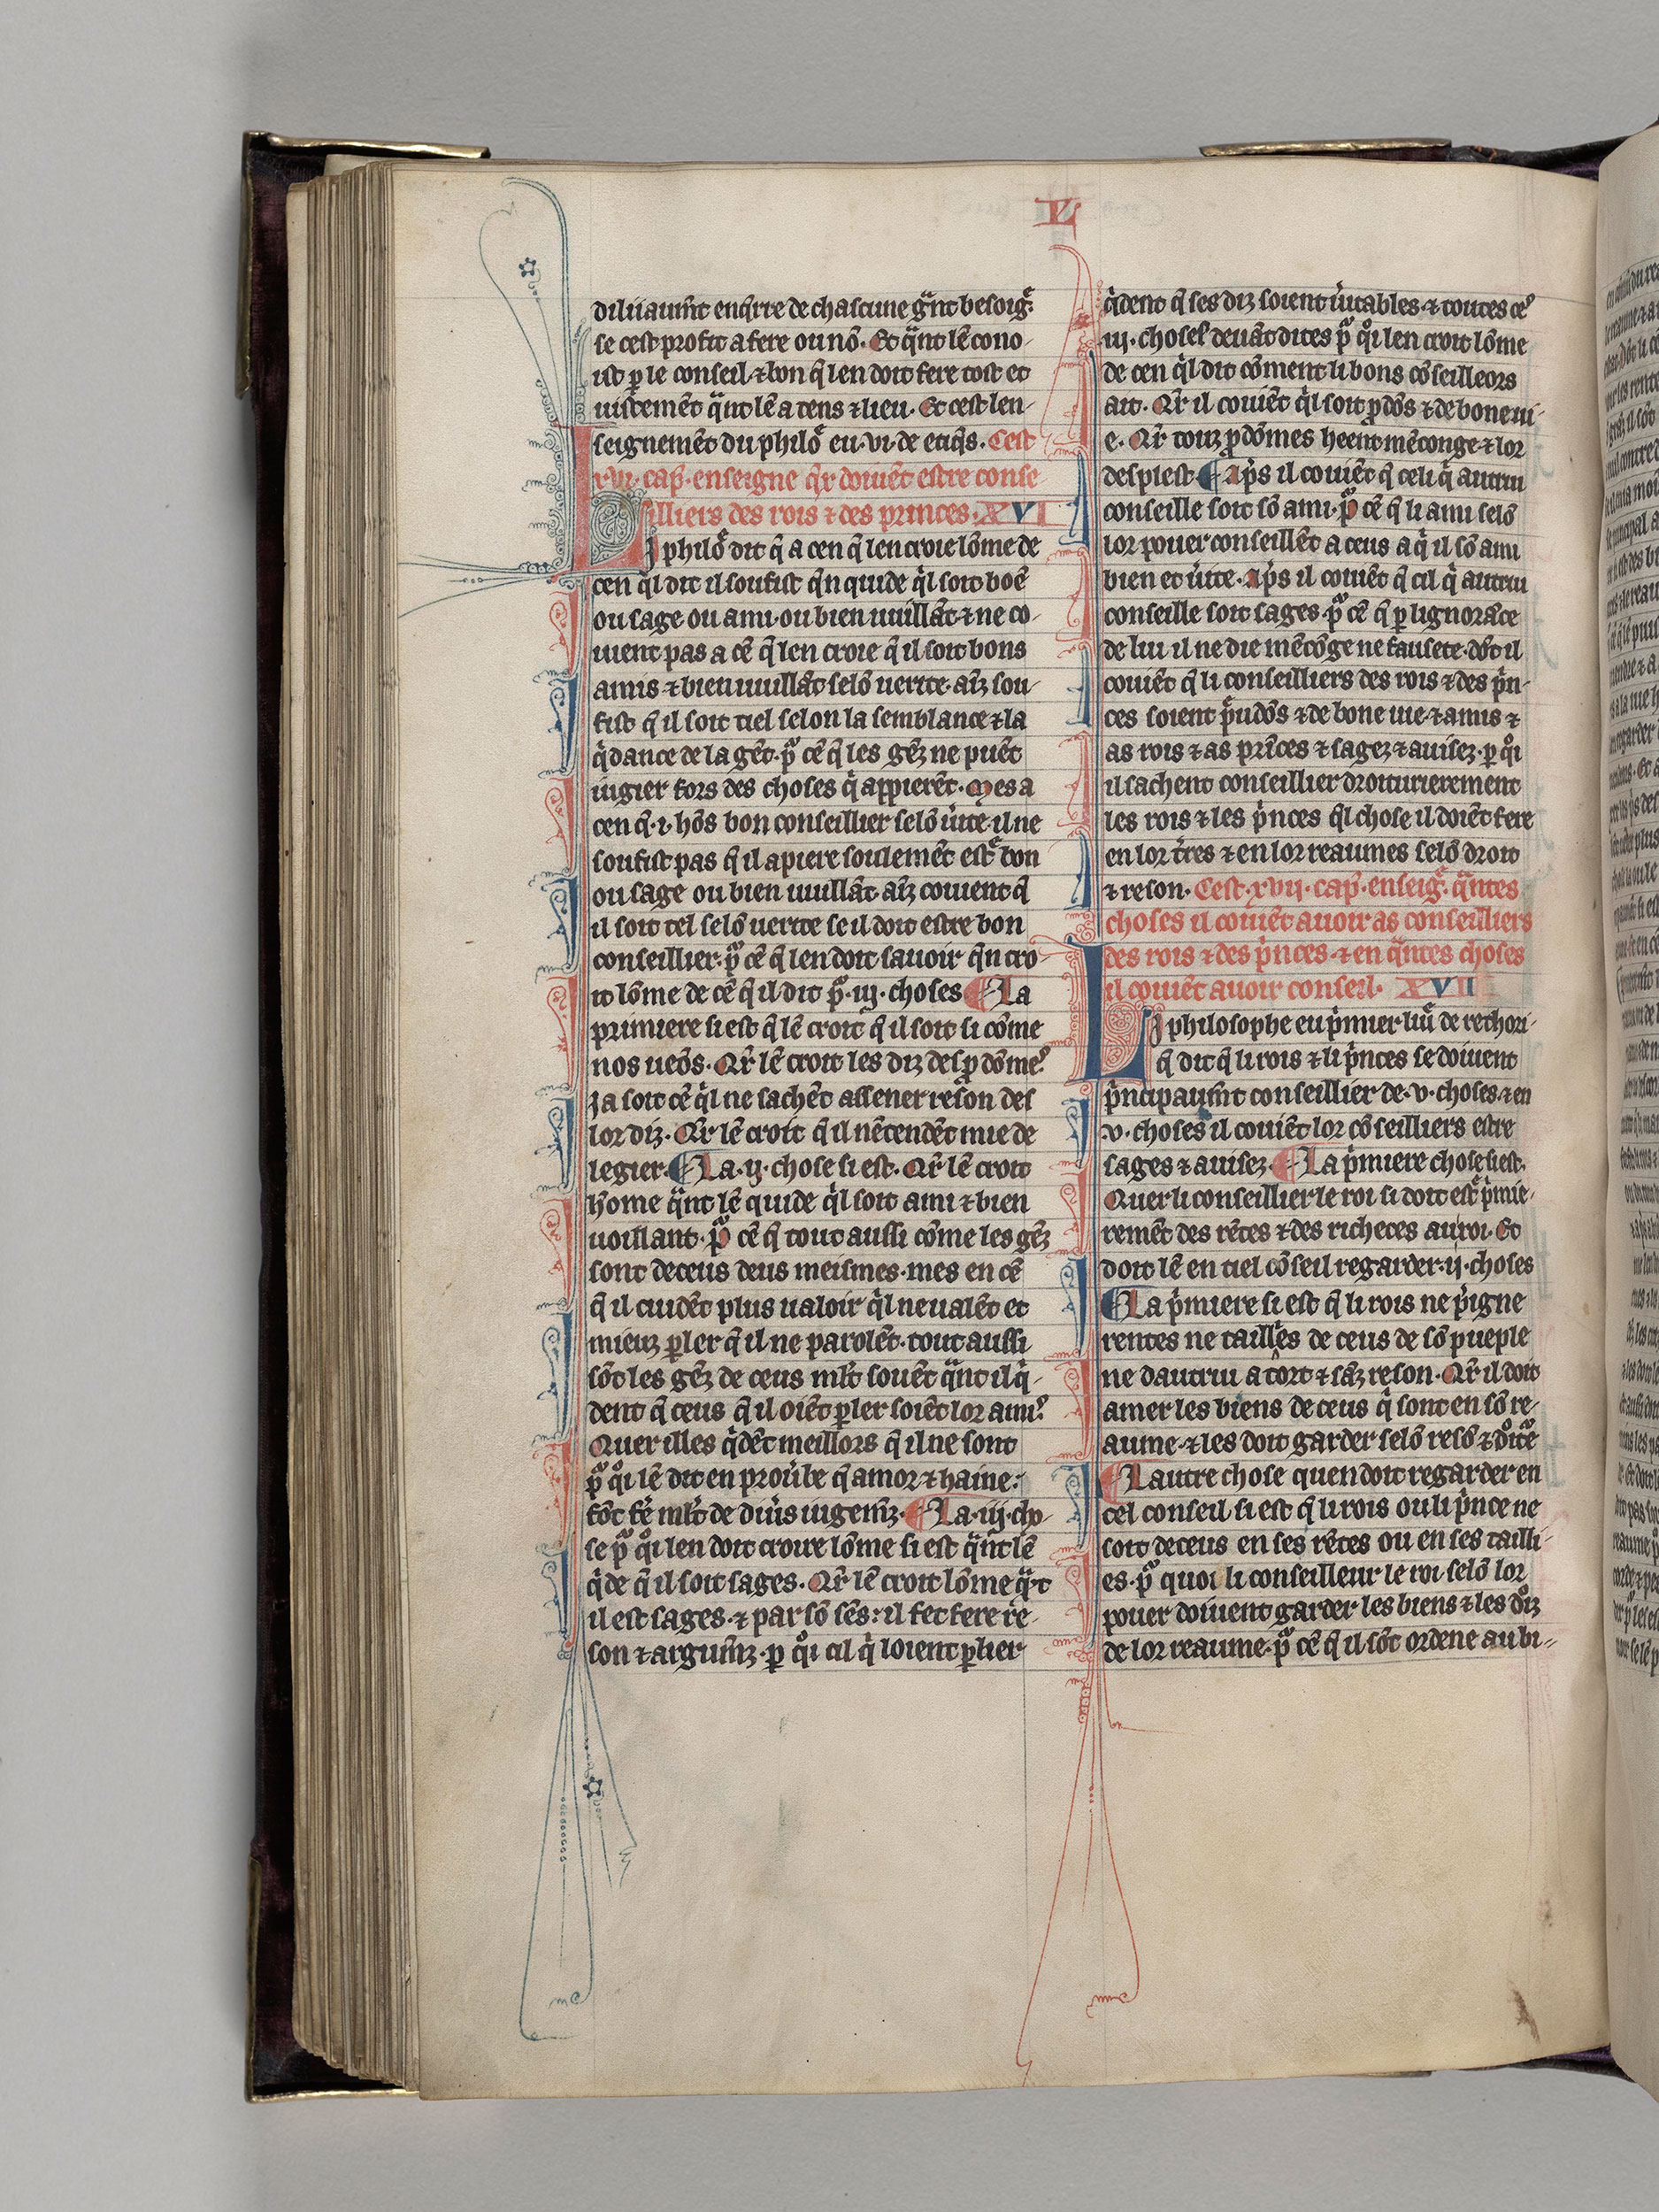 V
diliiaumt enqͥrre de chascune gͣnt besoigͤ.
se cest profit a fere ou nō. Et qͣnt lē cono-
ist ꝑ le conseil ⁊ bon q̄ len doit fere tost et
uistemēt qͣnt lē a tens ⁊ lieu. Et cest len-
seignemēt du philoͤ eu .vi. de etiqͥs. Cest
xvi. cap̄. enseigne qͥx doiuēt estre conse
illiers des rois ⁊ des princes. XVI
LI philoͤ dit q̄ a cen q̄ len croie lōme de
cen qͥl dit il soufist q̄n quide qͥl soit boē
ou sage ou ami. ou bien uuillāt ⁊ ne co-
uient pas a cē q̄ len croie q̄ il soit bons
amis ⁊ bien uuillāt selō uerite. aīz sou-
fist q̄ il soit tiel selon la semblance ⁊ la
qͥdance de la gēt. pͦͣ cē q̄ les gēz ne puēt
iugier fors des choses qͥ appierēt. Mes a
cen q̄ .i. hōs bon conseillier selō uͥite. il ne
soufist pas q̄ il apiere soulemēt estͤ bon
ou sage ou bien uuillāt. aīz couient q̄
il soit tel selō uerite se il doit estre bon
conseillier. pͦͣ cē q̄ len doit sauoir q̄n cro-
it lōme de cē q̄ il dit pͦͣ .iij. choses ¶ La
primiere si est q̄ lē croit q̄ il soit si cōme
nos ueōs. Qͥr lē croit les diz des ꝓdōmeꝰ.
ia soit cē qͥl ne sachēt assener reson des
lor diz. Qͥr lē croit q̄ il nētendēt mie de
legier. ¶ La .ij. chose si est. Qͥr lē croit
home qͣnt lē quide qͥl soit ami ⁊ bien
uoillant. pͦͣ cē q̄ tout aussi cōme les gēz
sont deceus deus meismes. mes en cē
q̄ il cuidēt plus ualoir qͥl ne ualēt et
mieuz ꝑler q̄ il ne parolēt. tout aussi
sōt les gēz de ceus mlt̄ souēt qͣnt il qͥ-
dent q̄ ceus q̄ il oiēt ꝑler soiēt lor amiꝰ.
Quer illes qͥdēt meillors q̄ il ne sont
pͦͣ qͦi lē dit en prouͥbe q̄ amor ⁊ haine.
fōt fͤr mlt̄ de diuͥs iugem̄z. ¶ La .iij. cho-
se pͦͣ qͦi len doit croire lōme si est qͣnt lē
qͥde q̄ il soit sages. Qͥr lē croit lōme qͣ̄t
il est sages. ⁊ par sō sēs. il set fere re-
son ⁊ argum̄z. ꝑ qͦi cil qͥ loient ꝑlier
qͥdent q̄ ses diz soient uͥitables. ⁊ toutes ceꝰ
iij. choses deuāt dites pͦͣ qͦi len croit lōme
de cen qͥl dit cōment li bons cōseilleors
ait. Qͥr il couiēt qͥl soit ꝓdōs ⁊ de bone ui-
e. Qͥr touz ꝓdōmes heent mēconge ⁊ lor
desplest. ¶ Apͥs il couiēt q̄ celi qͥ autrui
conseille soit sō ami. pͦͣ cē q̄ li ami selō
lor pouer conseillēt a ceus a qͥ il sō ami
bien et uͥite. Apͥs il couiēt q̄ cil qͥ autrui
conseille soit sages. pͦͣ cē q̄ ꝑ lignorāce
de lui il ne die mēcōge ne fausete. dōt il
couiēt q̄ li conseilliers des rois ⁊ des pͥn-
ces soient pͥudōs ⁊ de bone uie. ⁊ amis ⁊
as rois ⁊ as prīces ⁊ sagez ⁊ auisez. ꝑ qͦi
il sachent conseillier droiturierement
les rois ⁊ les pͥnces qͥl chose il doiēt fere
en lor tͥres ⁊ en lor reaumes selō droit
⁊ reson. Cest .xvij. cap̄. enseigͤ. qͣntes
choses il couiēt auoir as conseilliers
des rois ⁊ des pͥnces. ⁊ en qͣntes choses
il couiēt auoir conseil. XVII
LI philosophe eu pͥmier liuͤ de rethori-
q̄ dit q̄ li rois ⁊ li pͥnces se doiuent
pͥncipaum̄t conseillier de .v. choses. ⁊ en
.v. choses il couiēt lor cōseilliers estre
sages ⁊ auisez. ¶ La pͥmiere chose si est.
Quer li conseillier le roi si doit estͤ pͥmie-
remēt des rētes ⁊ des richeces au roi. Et
doit lē en tiel cōseil regarder .ij. choses
¶ La pͥmiere si est q̄ li rois ne pͥigne
rentes ne tailles de ceus de sō pueple
ne dautrui a tort ⁊ sāz reson. Qͥr il doit
amer les biens de ceus qͥ sont en sō re-
aume. ⁊ les doit garder selō resō ⁊ dͦitͤ
¶ Lautre chose quen doit regarder en
cel conseil si est q̄ li rois ou li pͥnce ne
soit deceus en ses rētes ou en ses tailli-
es. pͦͣ quoi li conseilleur le roi selō lor
pouer doiuent garder les biens ⁊ les dͦiz
de lor reaume. pͦͣ cē q̄ il sōt ordene au bi-